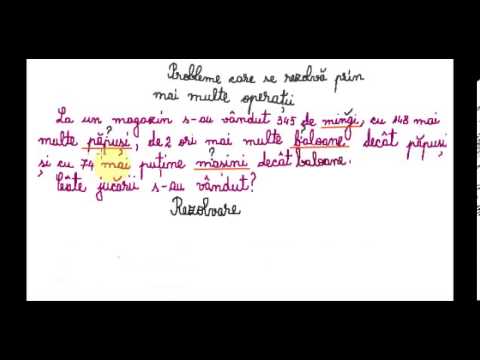 Probleme care se rezolvă prin
mai multe operații
La un magazin s-au vândut 345 de mingi, cu 148 mai
multe păpuși, de 2 ori mai multe baloane decât păpuși
și cu 74 mai puține mașini decât baloane.
Câte jucării s-au vândut?
Rezolvare